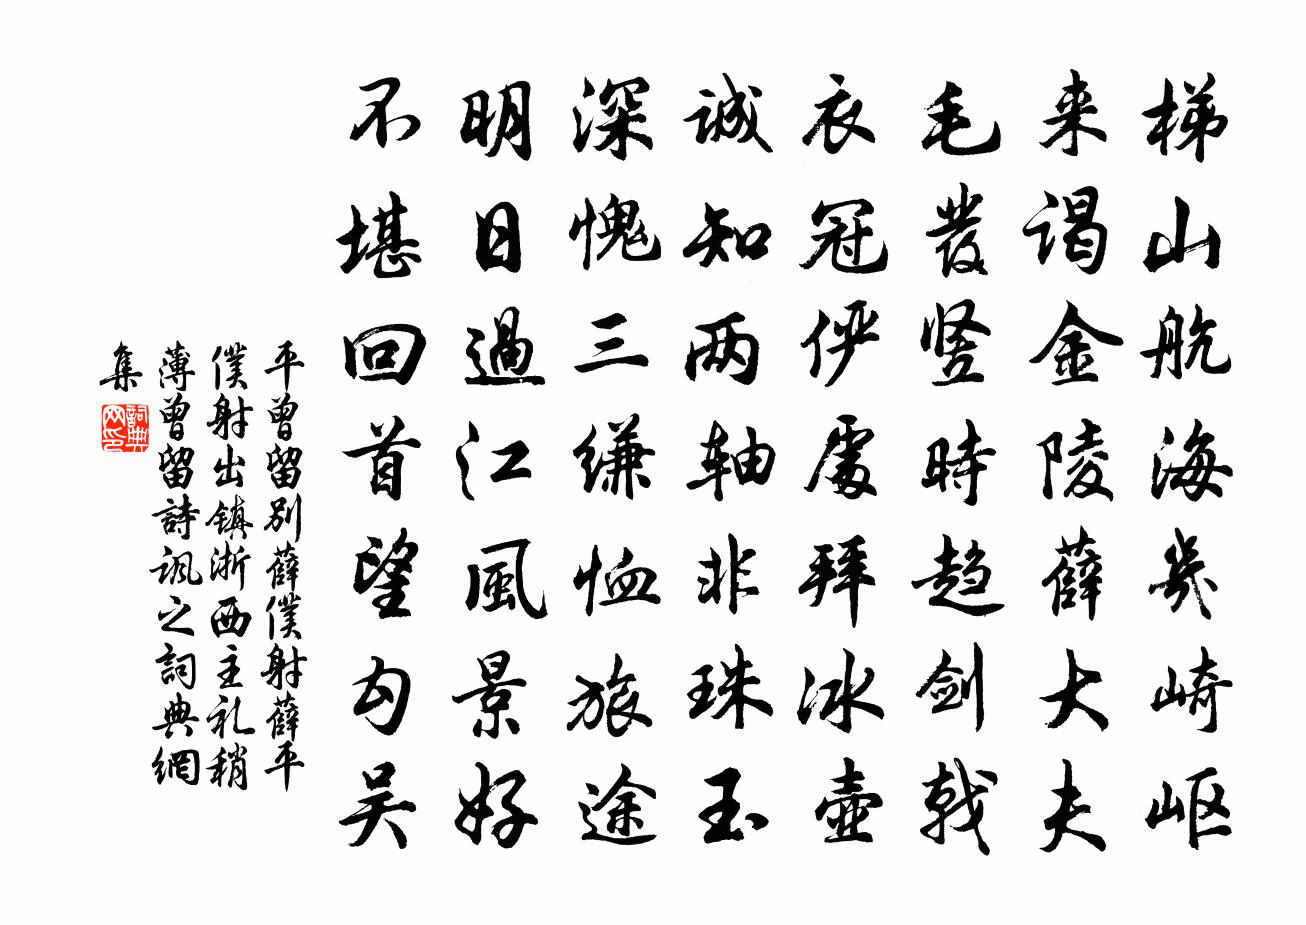 梯山航海幾崎岖
来谒金陵薛大夫
毛發竖時趋剑戟
衣冠俨處拜冰壶
誠知两轴非珠玉
深愧三缣恤旅途
明日過江風景好
不堪回首望勾吴
平曾留别薛僕射薛平
僕射出镇浙西主礼稍
薄曾留詩讽之詞典網
集
詞典网印